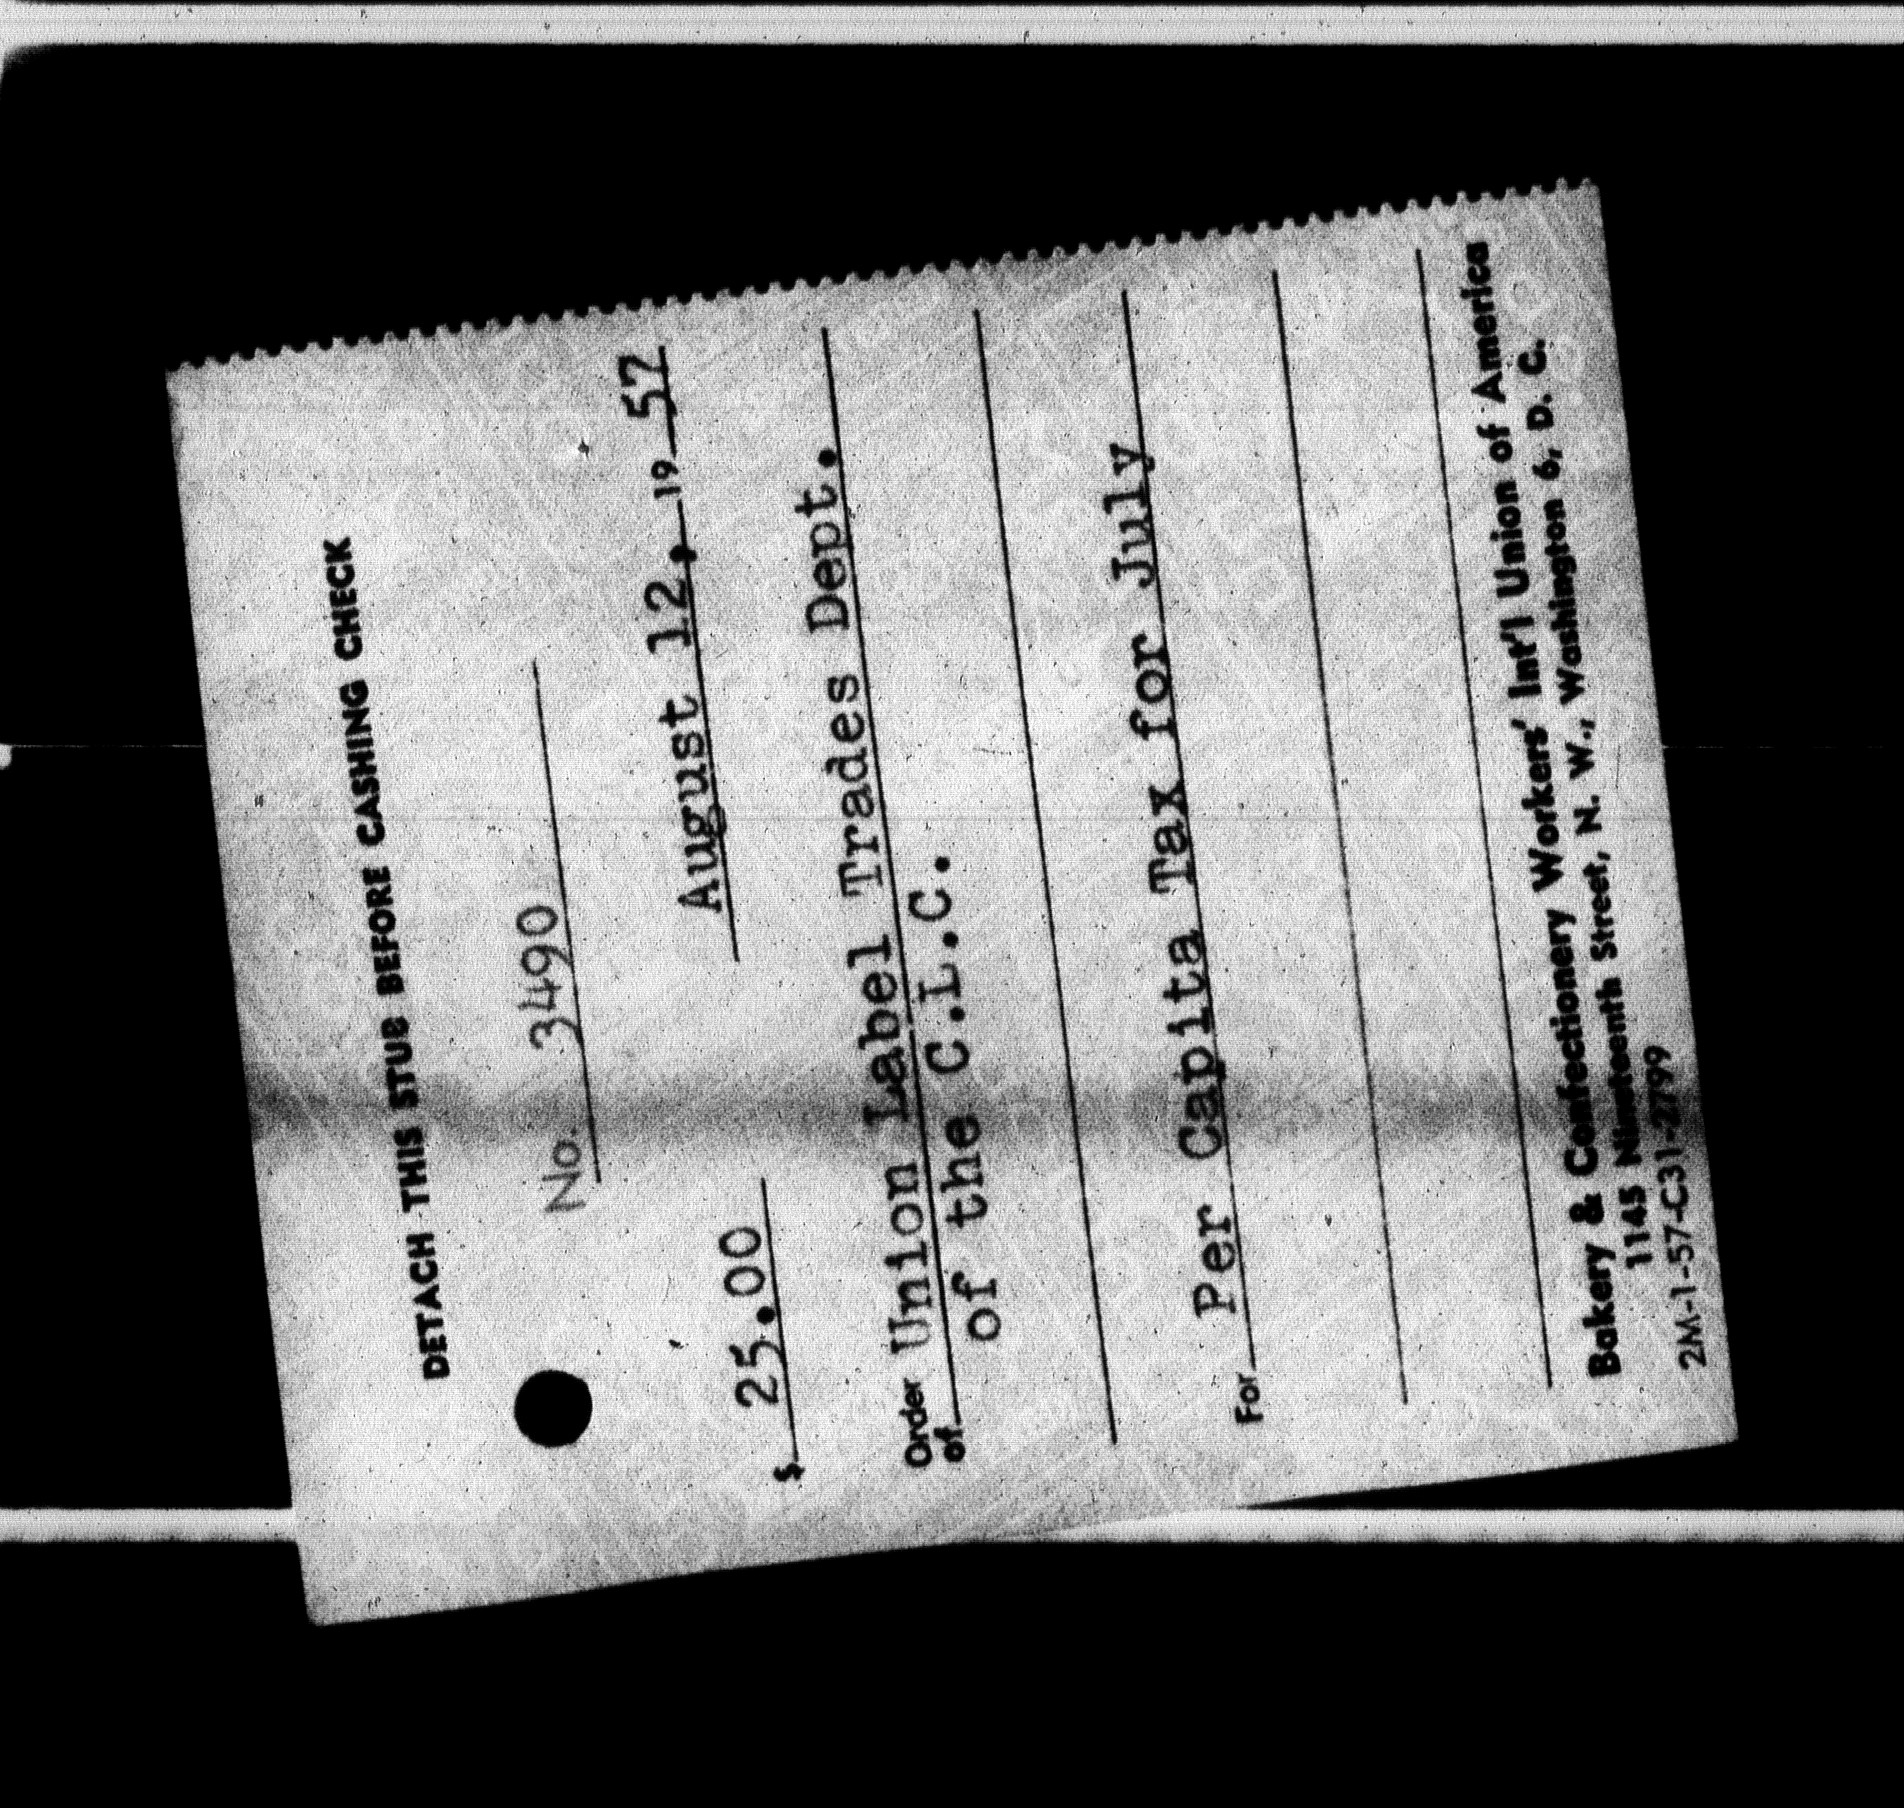 DETACH THIS STUB BEFORE CASHING CHECK
No. 3490
August 12, 19 57
$ 25.00
Order of Union Label Trades Dept.
of the C.L.C.
For Per Capita Tax for July
Bakery & Confectionery Workers' Int'l Union of America
1145 Nineteenth Street, N. W., Washington 6, D. C.
2M-1-57-C31-2799